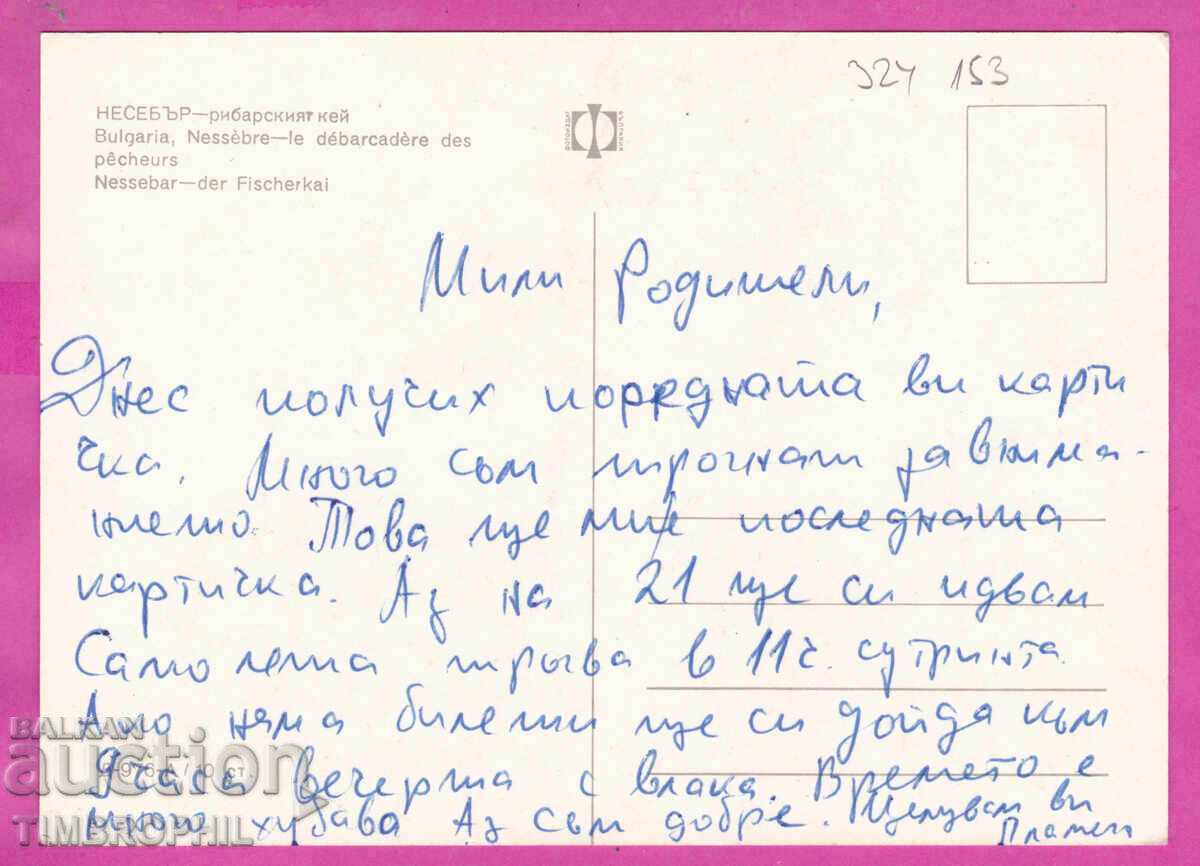 324 153
НЕСЕБЪР—рибарският кей
Bulgaria, Nessèbre—le débarcadère des
pêcheurs
Nessebar—der Fischerkai
ФОТОИЗДАТ
Мили Родители,
Днес получих поредната ви карти
чка. Много съм трогнат за внима-
нието. Това ще ми е последната
картичка. Аз на 21 ще си идвам
Самолета тръгва в 11ч. сутринта.
Ако няма билети ще си дойда към
9 часа вечерта с влака. Времето е
много хубаво Аз съм добре. Целувам ви
Пламен
BALKAN
auction
TIMBROPHIL